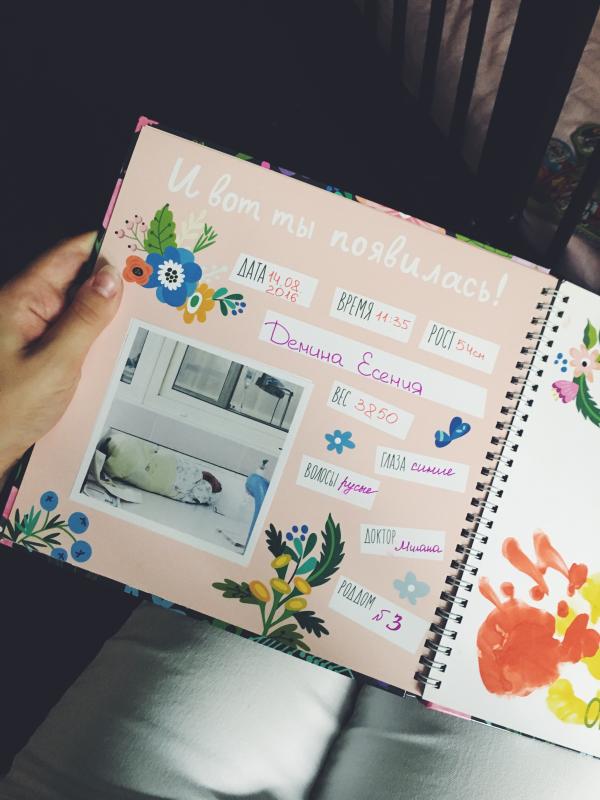 И вот ты появилась!
ДАТА 14.08.
2016
ВРЕМЯ 11:35
РОСТ 54см
Демина Есения
ВЕС 3850
ГЛАЗА синие
ВОЛОСЫ русые
ДОКТОР Милана
РОДДОМ №3